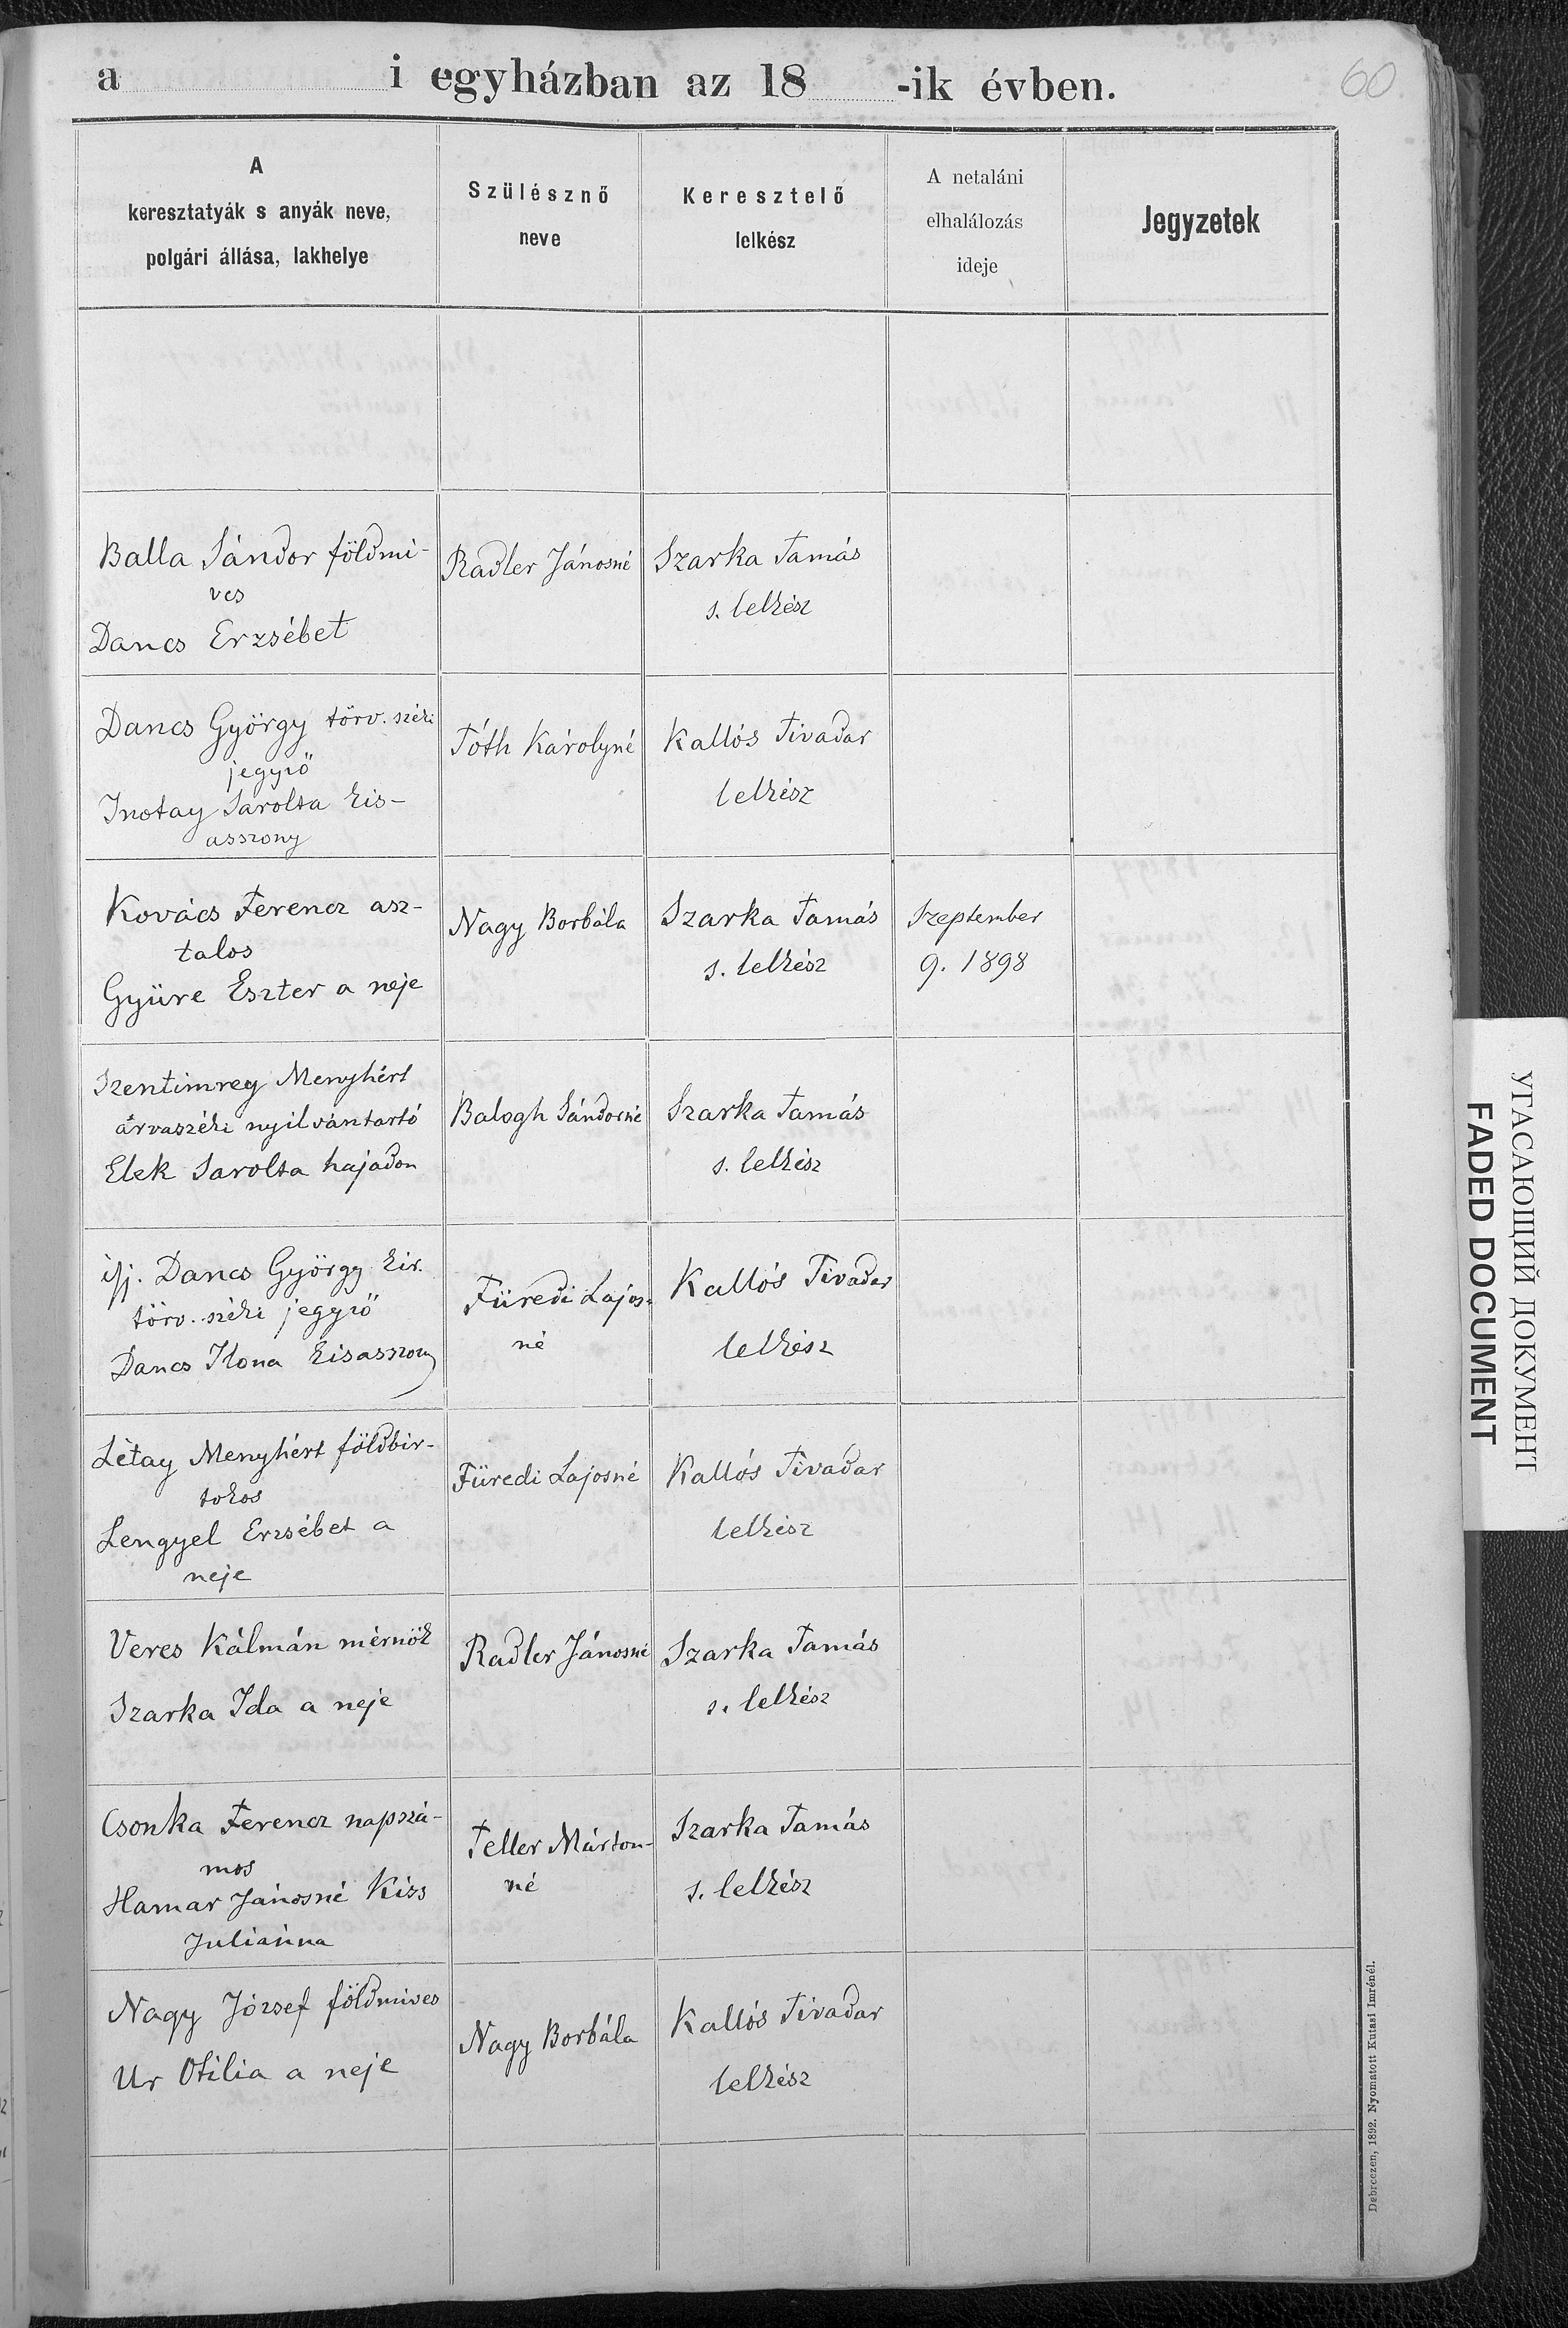 a i egyházban az 18 -ik évben.
60
A
keresztatyák s anyák neve,
polgári állása, lakhelye
Szülésznő
neve
Keresztelő
lelkész
A netaláni
elhalálozás
ideje
Jegyzetek
Balla Sándor földmi-
ves
Dancs Erzsébet
Radler Jánosné
Szarka Tamás
s. lelkész
Dancs György törv. széki
jegyző
Inotay Sarolta kis-
asszony
Tóth Károlyné
Kallós Tivadar
lelkész
Kovács Ferencz asz-
talos
Gyüre Eszter a neje
Nagy Borbála
Szarka Tamás
s. lelkész
Szeptember
9. 1898
Szentimrey Menyhért
árvaszéki nyilvántartó
Elek Sarolta hajadon
Balogh Sándorné
Szarka Tamás
s. lelkész
ifj. Dancs György kir.
törv. széki jegyző
Dancs Ilona kisasszony
Füredi Lajos-
né
Kallós Tivadar
lelkész
Létay Menyhért földbir-
tokos
Lengyel Erzsébet a
neje
Füredi Lajosné
Kallós Tivadar
lelkész
Veres Kálmán mérnök
Szarka Ida a neje
Radler Jánosné
Szarka Tamás
s. lelkész
Csonka Ferencz napszá-
mos
Hamar Jánosné Kiss
Juliánna
Teller Márton-
né
Szarka Tamás
s. lelkész
Nagy József földmives
Ur Otilia a neje
Nagy Borbála
Kallós Tivadar
lelkész
Debreczen, 1892. Nyomatott Kutasi Imrénél.
УГАСАЮЩИЙ ДОКУМЕНТ
FADED DOCUMENT